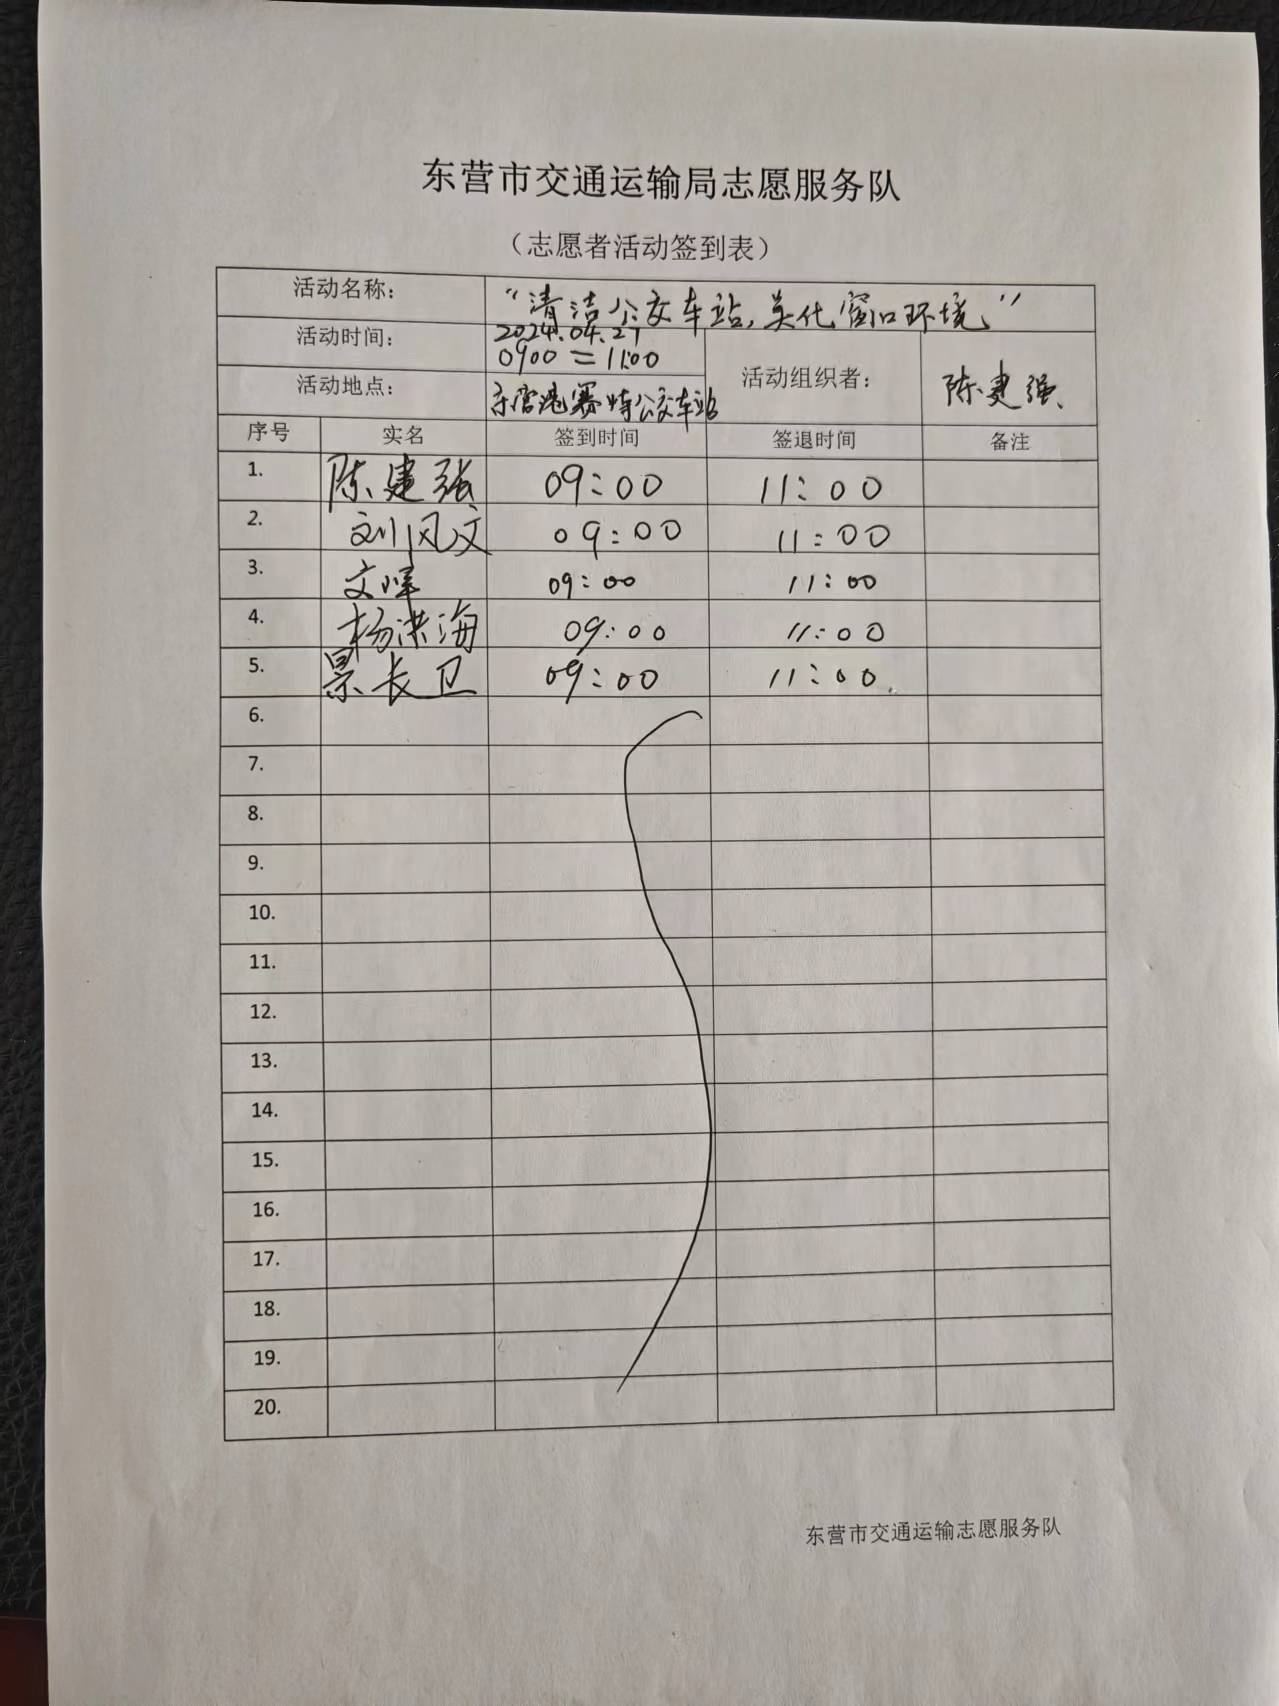 东营市交通运输局志愿服务队
（志愿者活动签到表）
活动名称： “清洁公交车站，美化窗口环境”
活动时间： 2024.04.27
0900=11:00
活动地点： 东营港赛特公交车站 活动组织者： 陈建强
序号 实名 签到时间 签退时间 备注
1. 陈建强 09:00 11:00
2. 刘风文 09:00 11:00
3. 文军 09:00 11:00
4. 杨洪海 09:00 11:00
5. 景长卫 09:00 11:00
6.
7.
8.
9.
10.
11.
12.
13.
14.
15.
16.
17.
18.
19.
20.
东营市交通运输志愿服务队